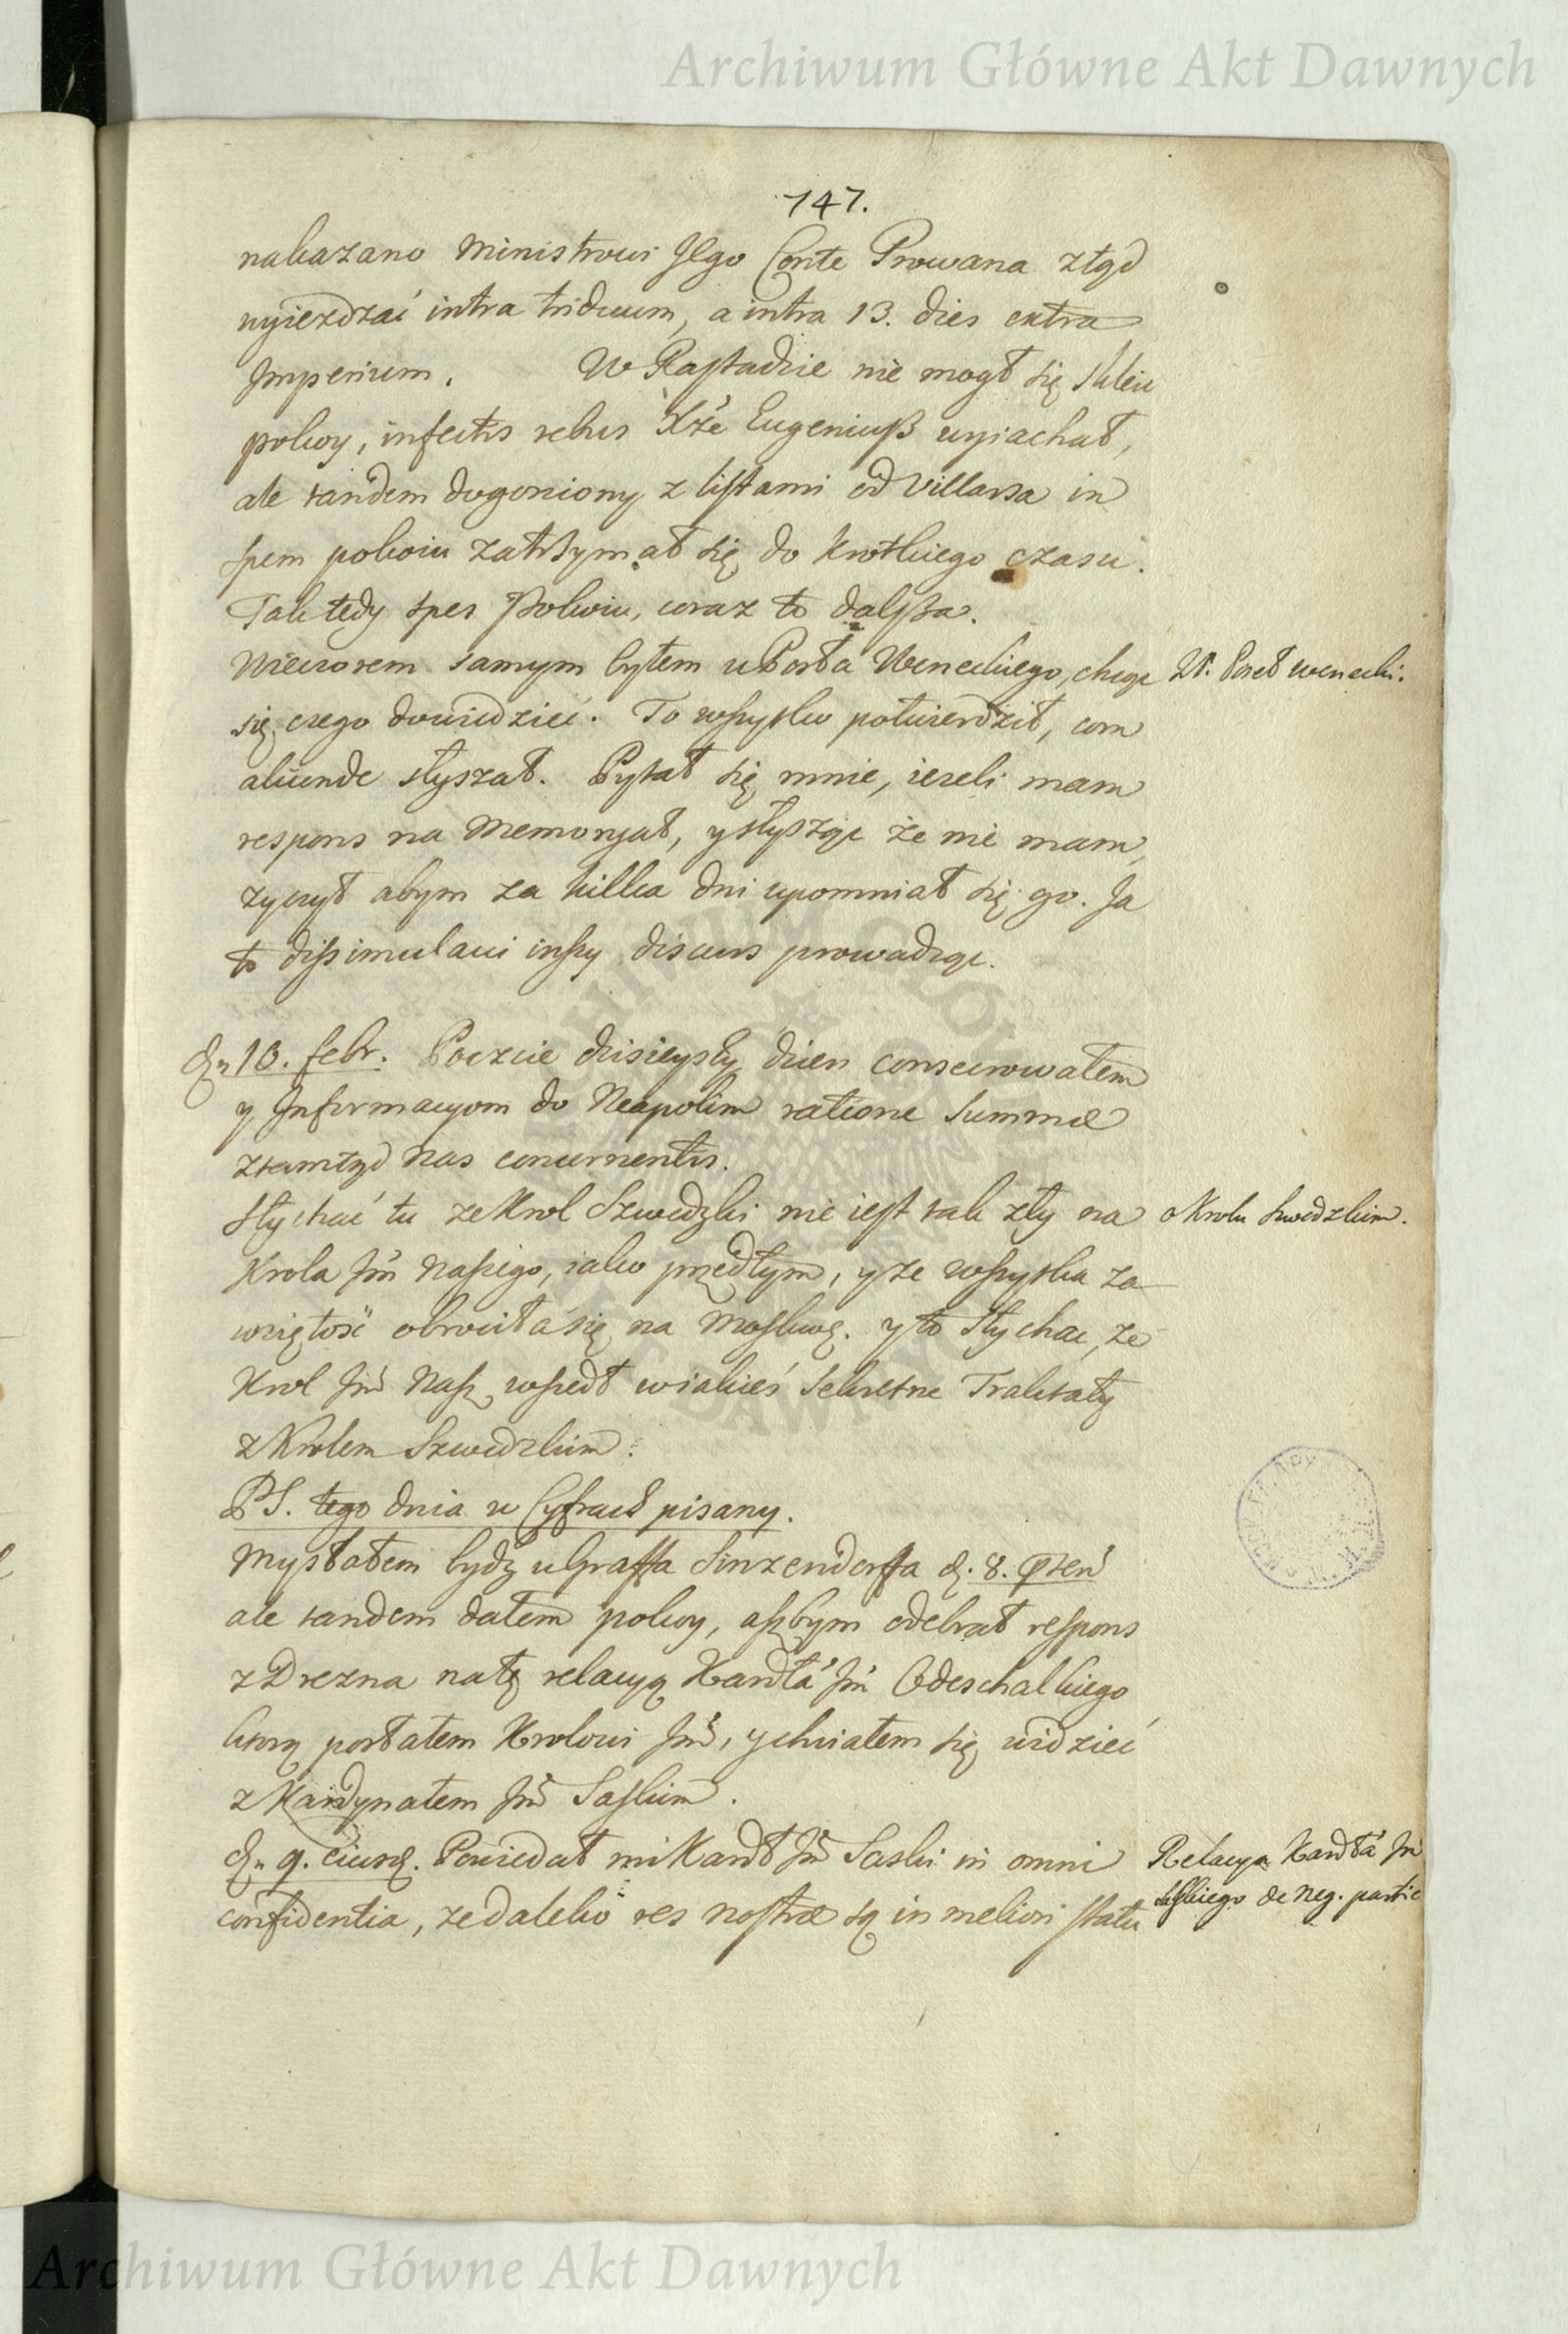 Archiwum Główne Akt Dawnych
147.
nakazano Ministrowi Jego Conte Prowana ztąd
wyieżdzać intra triduum, a intra 13. dies extra
Imperium. W Rastadzie nie mogł się skleić
pokoy, infectis rebus Xże Eugeniusz wyiachał,
ale tandem dogoniony z listami od Villarsa in
spem pokoiu zatrzymał się do krotkiego czasu.
Tak tedy spes Pokoiu, coraz to dalsza.
Wieczorem samym byłem u Posła Weneckiego, chcąc
się czego dowiedzieć. To wszystko potwierdził, com
aliunde słyszał. Pytał się mnie, iezeli mam
respons na Memoryał, y słysząc że nie mam,
zyczył abym za kilka dni upomniał się go. Ja
to dissimulavi inszy discurs prowadząc.
Poseł wenecki.
10. febr. Poczcie dzisieyszy dzien consecrowałem
y Informacyom do Neapolim ratione Summæ
ztamtąd nas concernentis.
Słychać tu ze Krol Szwedzki nie iest tak zły na
Krola Jmć Naszego, iako przedtym, y ze wszystka za
wziętość obrociła się na Moskwę. y to słychac, ze
Krol Jmć Nasz wszedł w iakieś sekretne Traktaty
z Krolem Szwedzkim.
o Krolu Szwedzkim.
PS. tego dnia w Cyfrach pisany.
Myslałem bydz u Graffa Sinzendorffa d. 8. praesen
ale tandem dałem pokoy, aszbym odebrał respons
z Drezna na tę relacyą Kardła Jmć Odeschalkiego
ktorą posłałem Krolowi Jmć, y chciałem się widzieć
z Kardynałem Jmć Saskim.
9. eiusd. Powiedał mi Kardł Jmć Saski in omni
confidentia, ze daleko res nostræ są in meliori statu
Relacya Kardła Jmć
Saskiego de neg. partic
Archiwum Główne Akt Dawnych